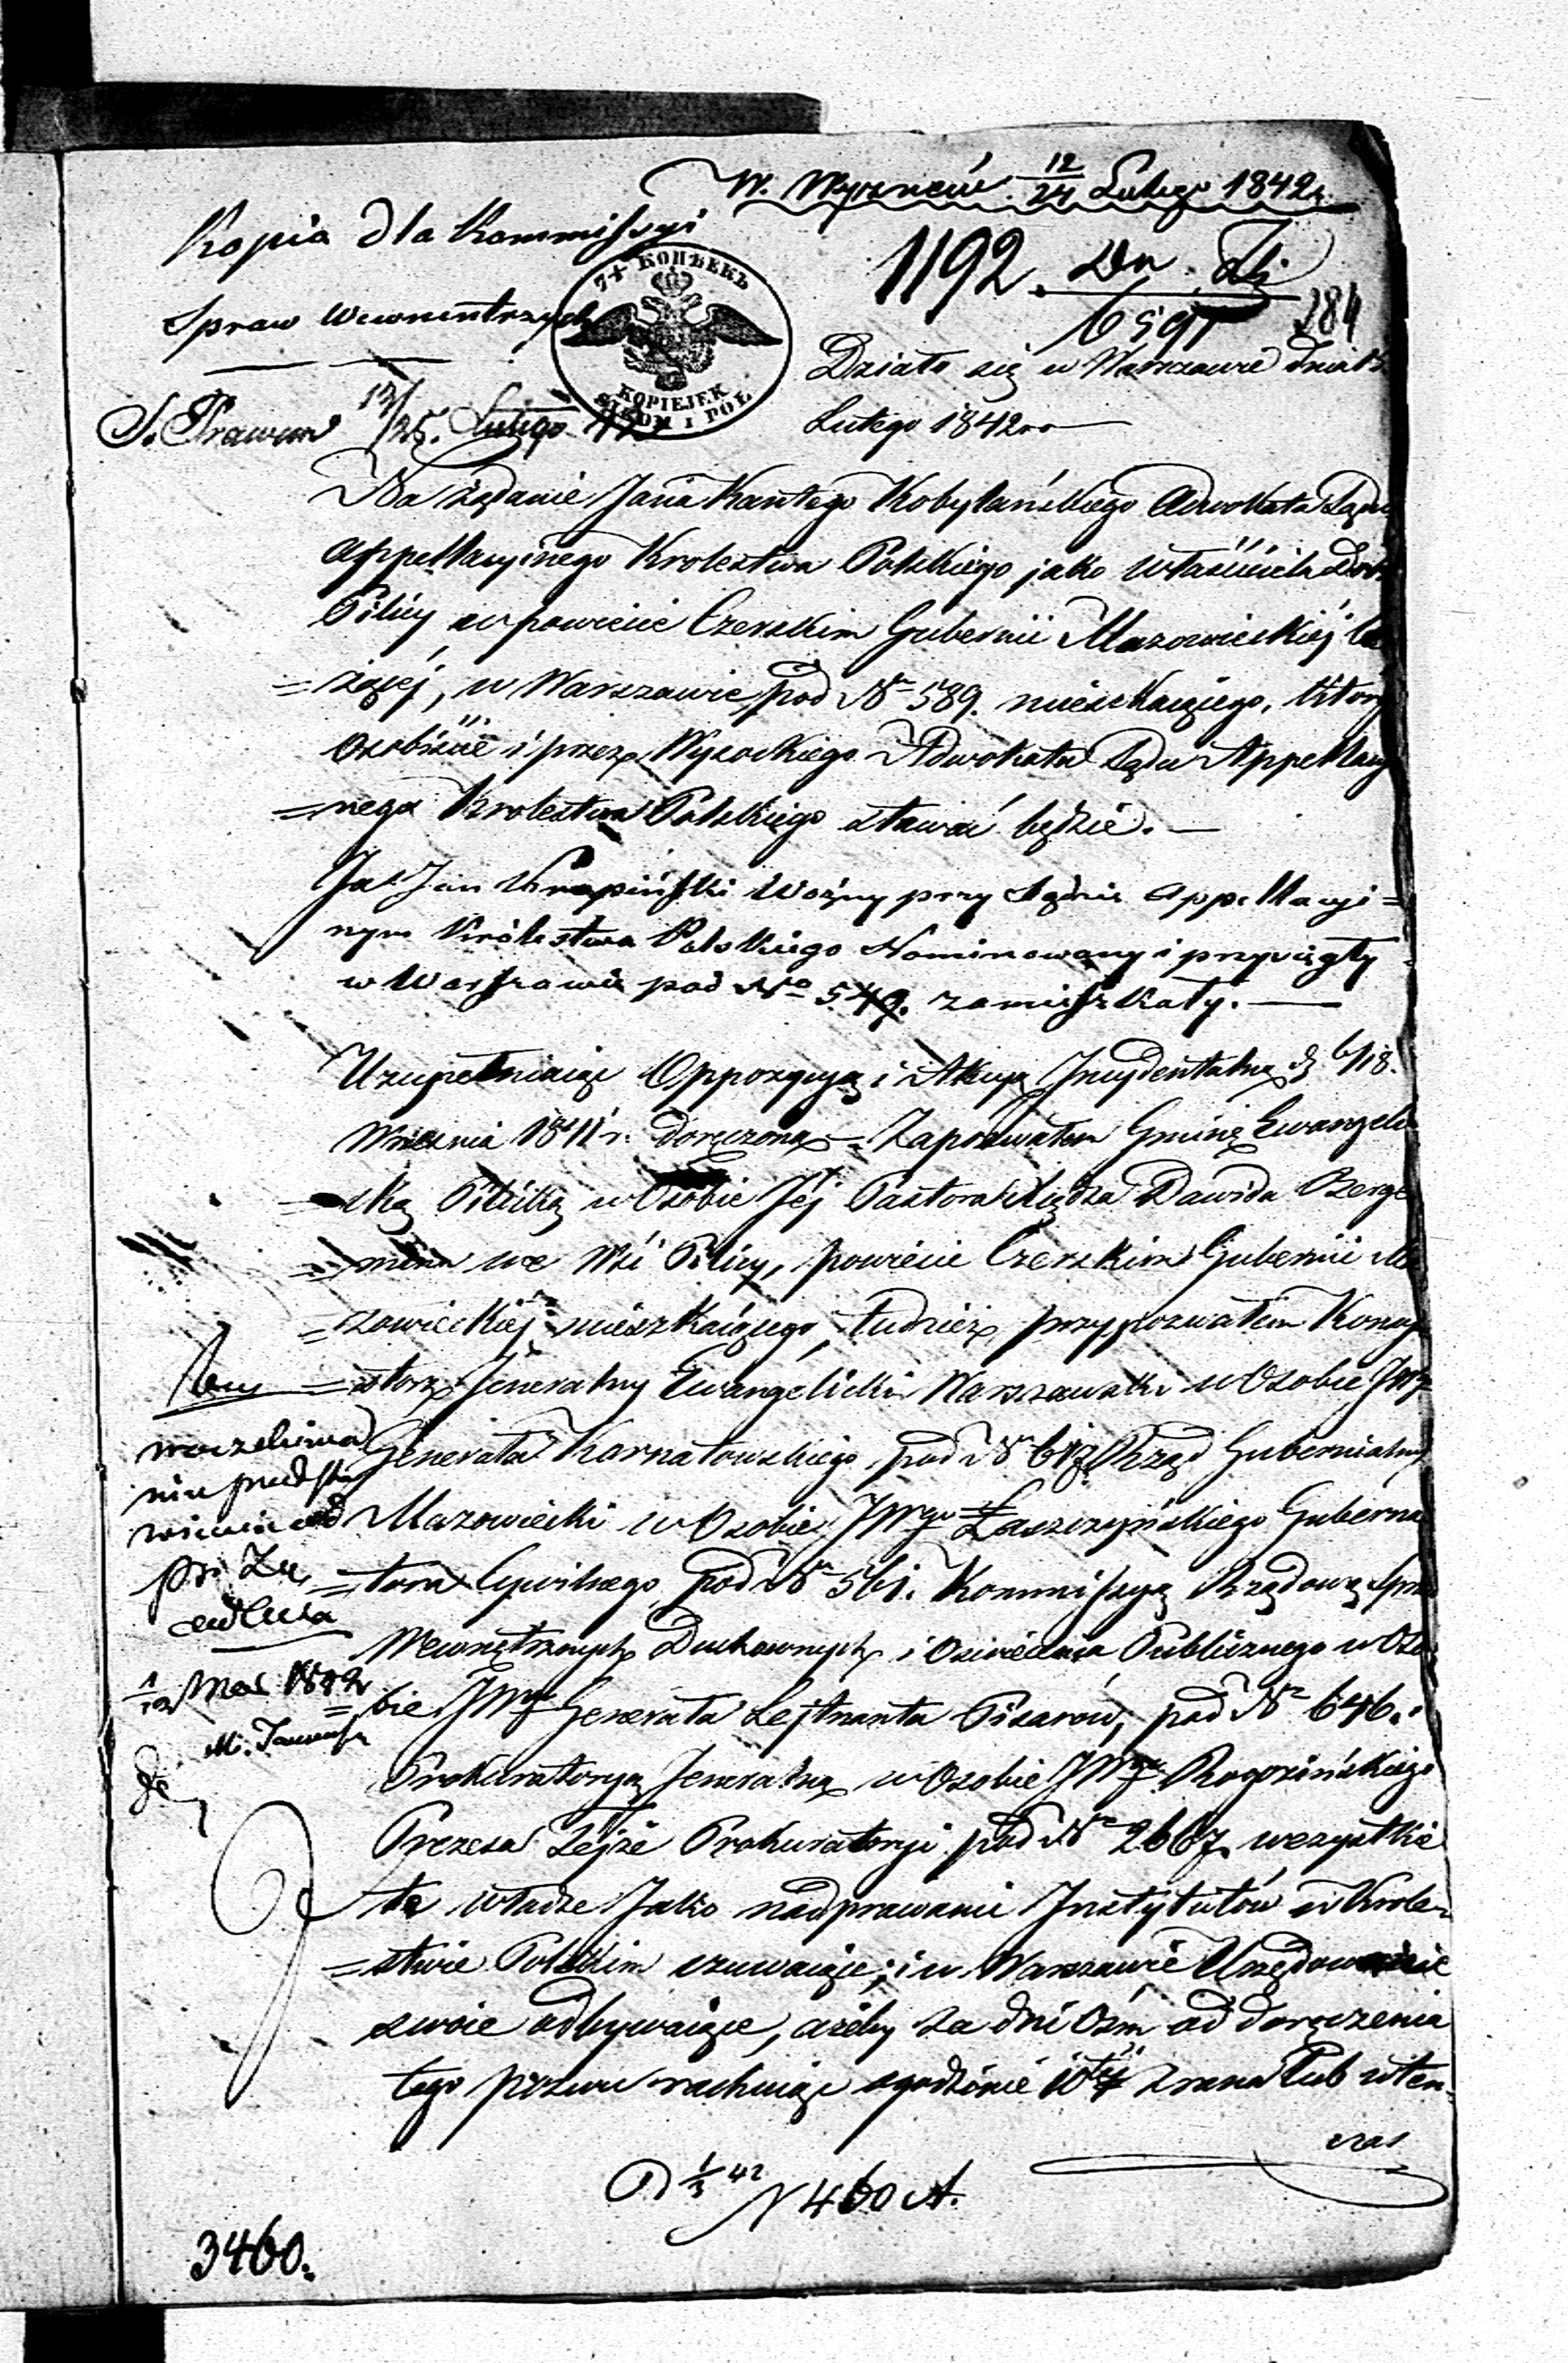 W. Wyznań 12/24 Lutego 1842
Kopia dla Kommissyi
Spraw Wewnentrznych
7½ КОПѢЕКЪ
KOPIEJEK
SIEDM I PÓŁ
1192.
6591
284
Działo się w Warszawie dnia
Lutego 1842
S. Prawna 13/25. Lutego 42
Na żądanie Jana Kantego Kobylańskiego Adwokata Sądu
Appellacyinego Krolestwa Polskiego jako właściciela Dóbr
Pilicy w powiecie Czerskim Gubernii Mazowieckiéj le
=żącéj, w Warszawie pod No 589. mieszkaiącego, który
Osobiście i przez Wysockiego Adwokata Sądu Appellacyi
=nego Krolestwa Polskiego stawać będzie. —
Ja Jan Krapiński Woźny przy Sądzie Appellacyi=
nym Królestwa Polskiego Nominowany i przysięgły
w Warszawie pod No 549. zamieszkały. —
Uzupełniaiąc Oppozycyą i Akcyą Incydentalną d. 6/18.
Września 1841 r. doręczoną — Zapozwałem Gminę Ewangeli
=cką Pilicką w Osobie Jéj Pastora Xiędza Dawida Berge
=mana we Wsi Pilicy, powiecie Czerskim Gubernii Ma
=zowieckiéj mieszkaiącego, tudzież przypozwałem Konsy
=storz Jeneralny Ewangelicki Warszawski w Osobie JWgo
Generała Karnatowskiego pod No 612 Rząd Gubernialny
Mazowiecki w Osobie JWgo Łaszczyńskiego Guberna
=tora Cywilnego pod No 561. Kommissyą Rządową Spraw
Wewnętrznych Duchownych i Oświecenia Publicznego w Oso
=bie JWgo Generała Lejtnanta Pisarew, pod No 646.
Prokuratoryą Jeneralną w Osobie JWgo Rogozińskiego
Prezesa Tejże Prokuratoryi pod No 2667 wszystkie
te władze Jako nad prawami Instytutów w Krole=
=stwie Polskim czuwaiące, i w Warszawie Urzędowanie
swoie odbywaiące, ażeby za dni Ośm od doręczenia
tego pozwu rachuiąc o godzinie 10téj z rana lub wten=
czas
naczelnika
nie przedsta
wienia od
1/13 Mar 1842
D 1/3 42
N 460 A.
3460.